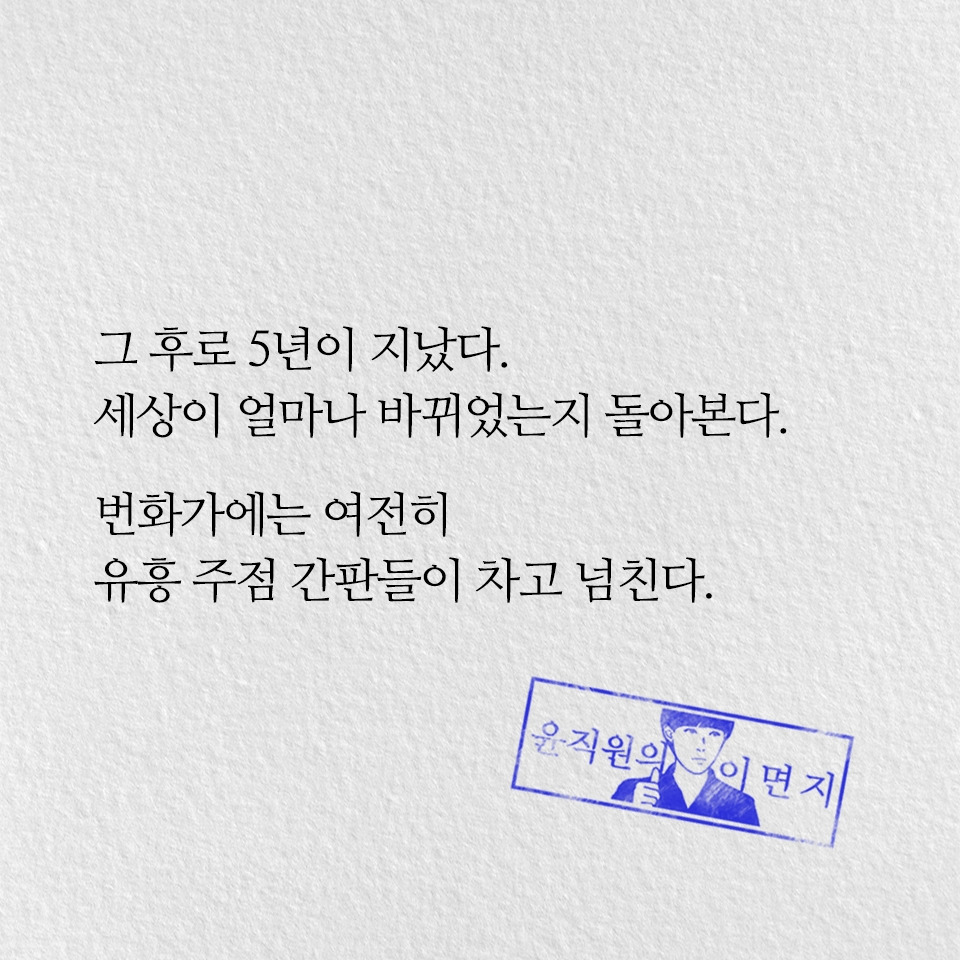 그 후로 5년이 지났다.
세상이 얼마나 바뀌었는지 돌아본다.
번화가에는 여전히
유흥 주점 간판들이 차고 넘친다.
윤직원의 이면지